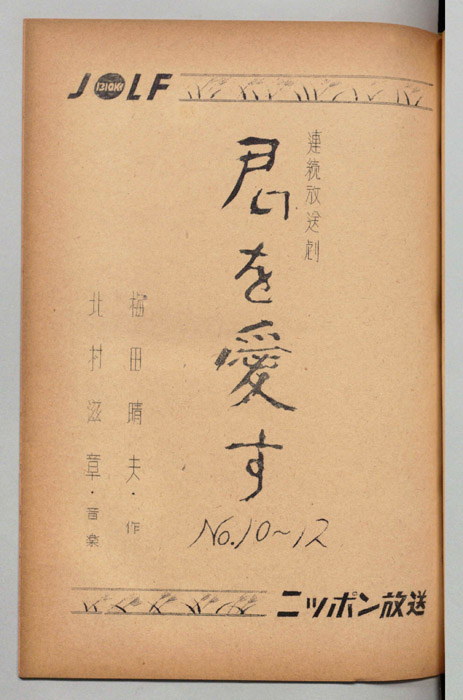 JOLF
1310KC
連続放送劇
君を愛す
No.10~12
梅田晴夫・作
北村滋章・音楽
ニッポン放送